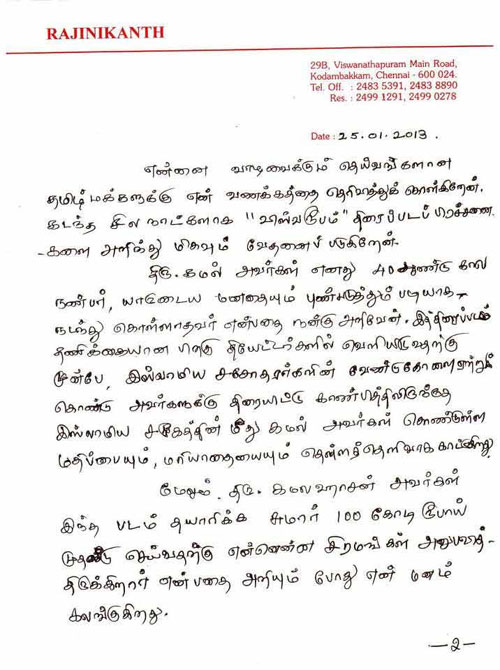 RAJINIKANTH
29B, Viswanathapuram Main Road,
Kodambakkam, Chennai - 600 024.
Tel. Off. : 2483 5391, 2483 8890
Res. : 2499 1291, 2499 0278
Date : 25.01.2013.
என்னை வாழவைக்கும் தெய்வங்களான
தமிழ் மக்களுக்கு என் வணக்கத்தை தெரிவித்துக் கொள்கிறேன்.
கடந்த சில நாட்களாக "விஸ்வரூபம்" திரைப்படப் பிரச்சனை-
-களை அறிந்து மிகவும் வேதனைப் படுகிறேன்.
திரு. கமல் அவர்கள் எனது 40 ஆண்டு கால
நண்பர், யாருடைய மனதையும் புண்படுத்தும் படியாக-
நடந்து கொள்ளாதவர் என்பதை நன்கு அறிவேன். இத்திரைப்படம்
தணிக்கையான பிறகு தியேட்டர்களில் வெளியிடுவதற்கு
முன்பே, இஸ்லாமிய சகோதரர்களின் வேண்டுகோளை ஏற்றுக்
கொண்டு அவர்களுக்கு திரையிட்டு காண்பித்திலிருந்தே
இஸ்லாமிய சமூகத்தின் மீது கமல் அவர்கள் கொண்டுள்ள
மதிப்பையும், மரியாதையையும் தெள்ளத்தெளிவாக காட்டுகிறது.
மேலும் திரு. கமலஹாசன் அவர்கள்
இந்த படம் தயாரிக்க சுமார் 100 கோடி ரூபாய்
முதலீடு செய்வதற்கு என்னென்ன சிரமங்கள் அனுபவித்-
திருக்கிறார் என்பதை அறியும் போது என் மனம்
கலங்குகிறது.
—2—